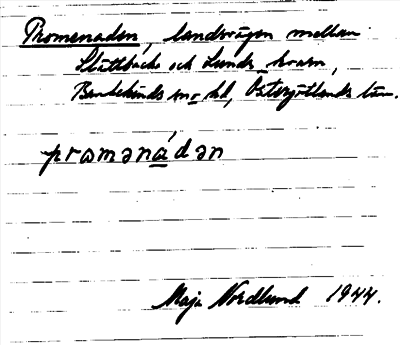 Promenaden, landsvägen mellan
och Lunds kvarn,
Bankekinds sn o hd, Östergötlands län.
promenaden
Maja Nordlund 1944.